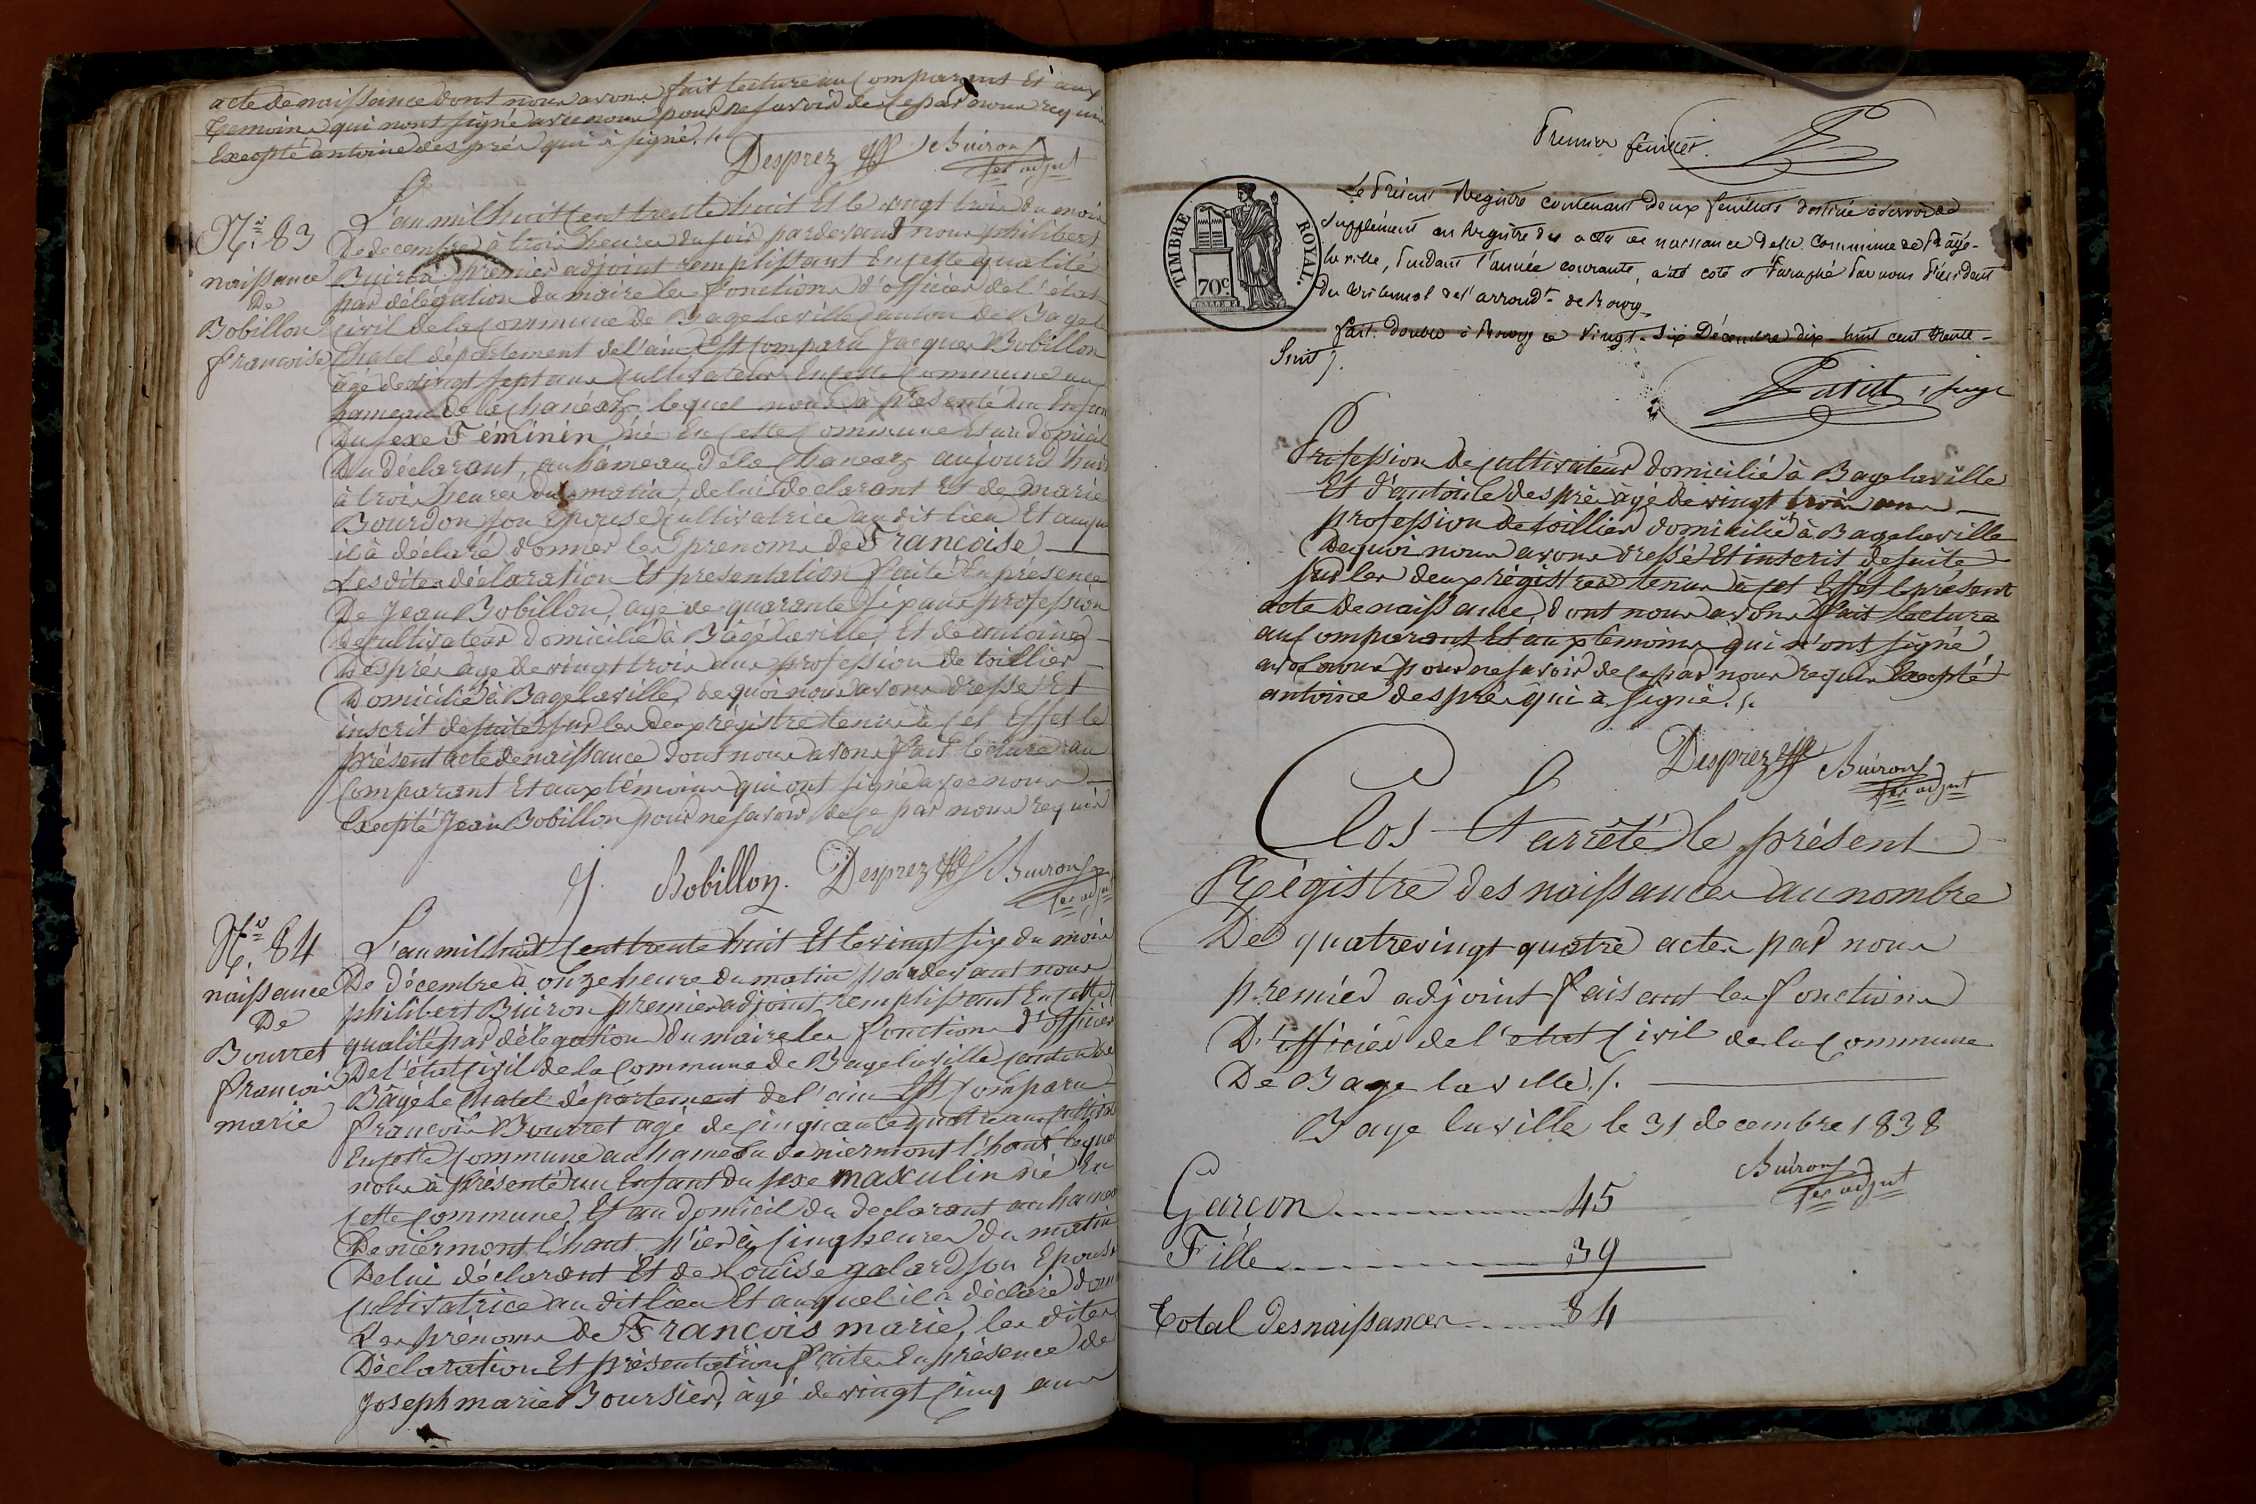 acte de naissance dont nous avons fait lecture au Comparant Et aux
temoins qui nont signé avec nous pour ne savoir de ce par nous requis
Excepté antoine després qui à signé. /.
Desprez Buiron
1er adjnt
N.° 83
naissance
De
Bobillon
françoise
L'an mil huit Cent trente huit Et le vingt trois du mois
De decembre à trois heures du soir pardevant nous philibert
Buiron premier adjoint remplissant En cette qualité
par délégation du maire les fonctions d'officier de l'etat
civil de la Commune de Bagé la ville Canton de Bagé le
Chatel département de l'ain Est Comparu Jacques Bobillon
agé de vingt sept ans Cultivateur En cette Commune au
hameau de la Chanéaz lequel nous à présenté un Enfant
Du sexe Féminin né En Cette Commune Et au domicil
Du déclarant, au hameau dela Chaneaz aujourd'hui
à trois heures du matin, de lui déclarant Et de marie
Bourdon son Epouse cultivatrice au dit lieu Et auquel
il à déclaré donner les prenoms de Françoise
Les dites déclaration Et presentation faite En présence
De Jean Bobillon, agé de quarante six ans profession
De cultivateur domicilié à Bâgé la ville Et de antoine
Després age de vingt trois ans profession de toillier
Domicilié à Bagé la ville, de quoi nous avons dressé Et
inscrit de suite sur les deux régistre tenus à cet Effet le
présent acte de naissance dont nous avons fait lecture au
Comparant Et aux témoins qui ont signé avec nous
Excepté Jean Bobillon pour ne savoir de ce par nous requis
J. Bobillon. Desprez Buiron
1er adjnt
N.° 84
naissance
De
Bourret
françois
marie
L'an mil huit Cent trente huit Et le vingt six du mois
De décembre à onze heure du matin pardevant nous
philibert Buiron premier adjoint remplissant En cette
qualité par délégation du maire les fonctions d'officier
De l'état Civil de la Commune de Bagé la ville Canton de
Bâgé le Chatel département de l'ain Est Comparu
françois Bourret agé de Cinquante quatre ans Cultivat
En cette Commune au hameau de niermont l'haut lequel
nous à présenté un Enfant du sexe masculin né En
Cette Commune Et au domicil du declarant au hameau
De niermont l'haut hier à Cinq heures du matin
De lui déclarant Et de Louise galard son Epouse
Cultivatrice au dit lieu Et auquel il à déclaré donner
Les prénoms de François marie, les dites
Déclaration Et présentation faites En présence de
Joseph marie Boursier, âgé de vingt Cinq ans
Premier feuillet.
TIMBRE ROYAL.
70c
Le Présent Registre contenant Deux feuillets destiné à servir de
supplément au Registre des actes de naissance de la Commune de Bâgé-
la ville, pendant l'année courante, a été coté et Paraphé Par nous Président
du tribunal de l'arrondt de Bourg
fait double à Bourg ce vingt-six Décembre dix-huit cent trente-
huit.
Profession de Cultivateur domicilié à Bage la ville
Et d'antoine després âgé de vingt trois ans
profession de toillier domicilié à Bage la ville
De quoi nous avons dressé Et inscrit de suite
sur les deux régistres tenus à cet Effet le présent
acte de naissance, dont nous avons fait lecture
au Comparant Et aux témoins qui n'ont signé
avec nous pour ne savoir de ce par nous requis Excepté
antoine després qui à signé. /.
Desprez Buiron
1er adjnt
Clos Et arrêté le présent
Régistre des naissances au nombre
De quatrevingt quatre actes par nous
premier adjoint faisant les fonctions
D'officier de l'etat Civil de la Commune
De Bage la ville /.
Bage la ville le 31 decembre 1838
Buiron
1er adjnt
Garçon 45
Fille 39
Total des naissances 84